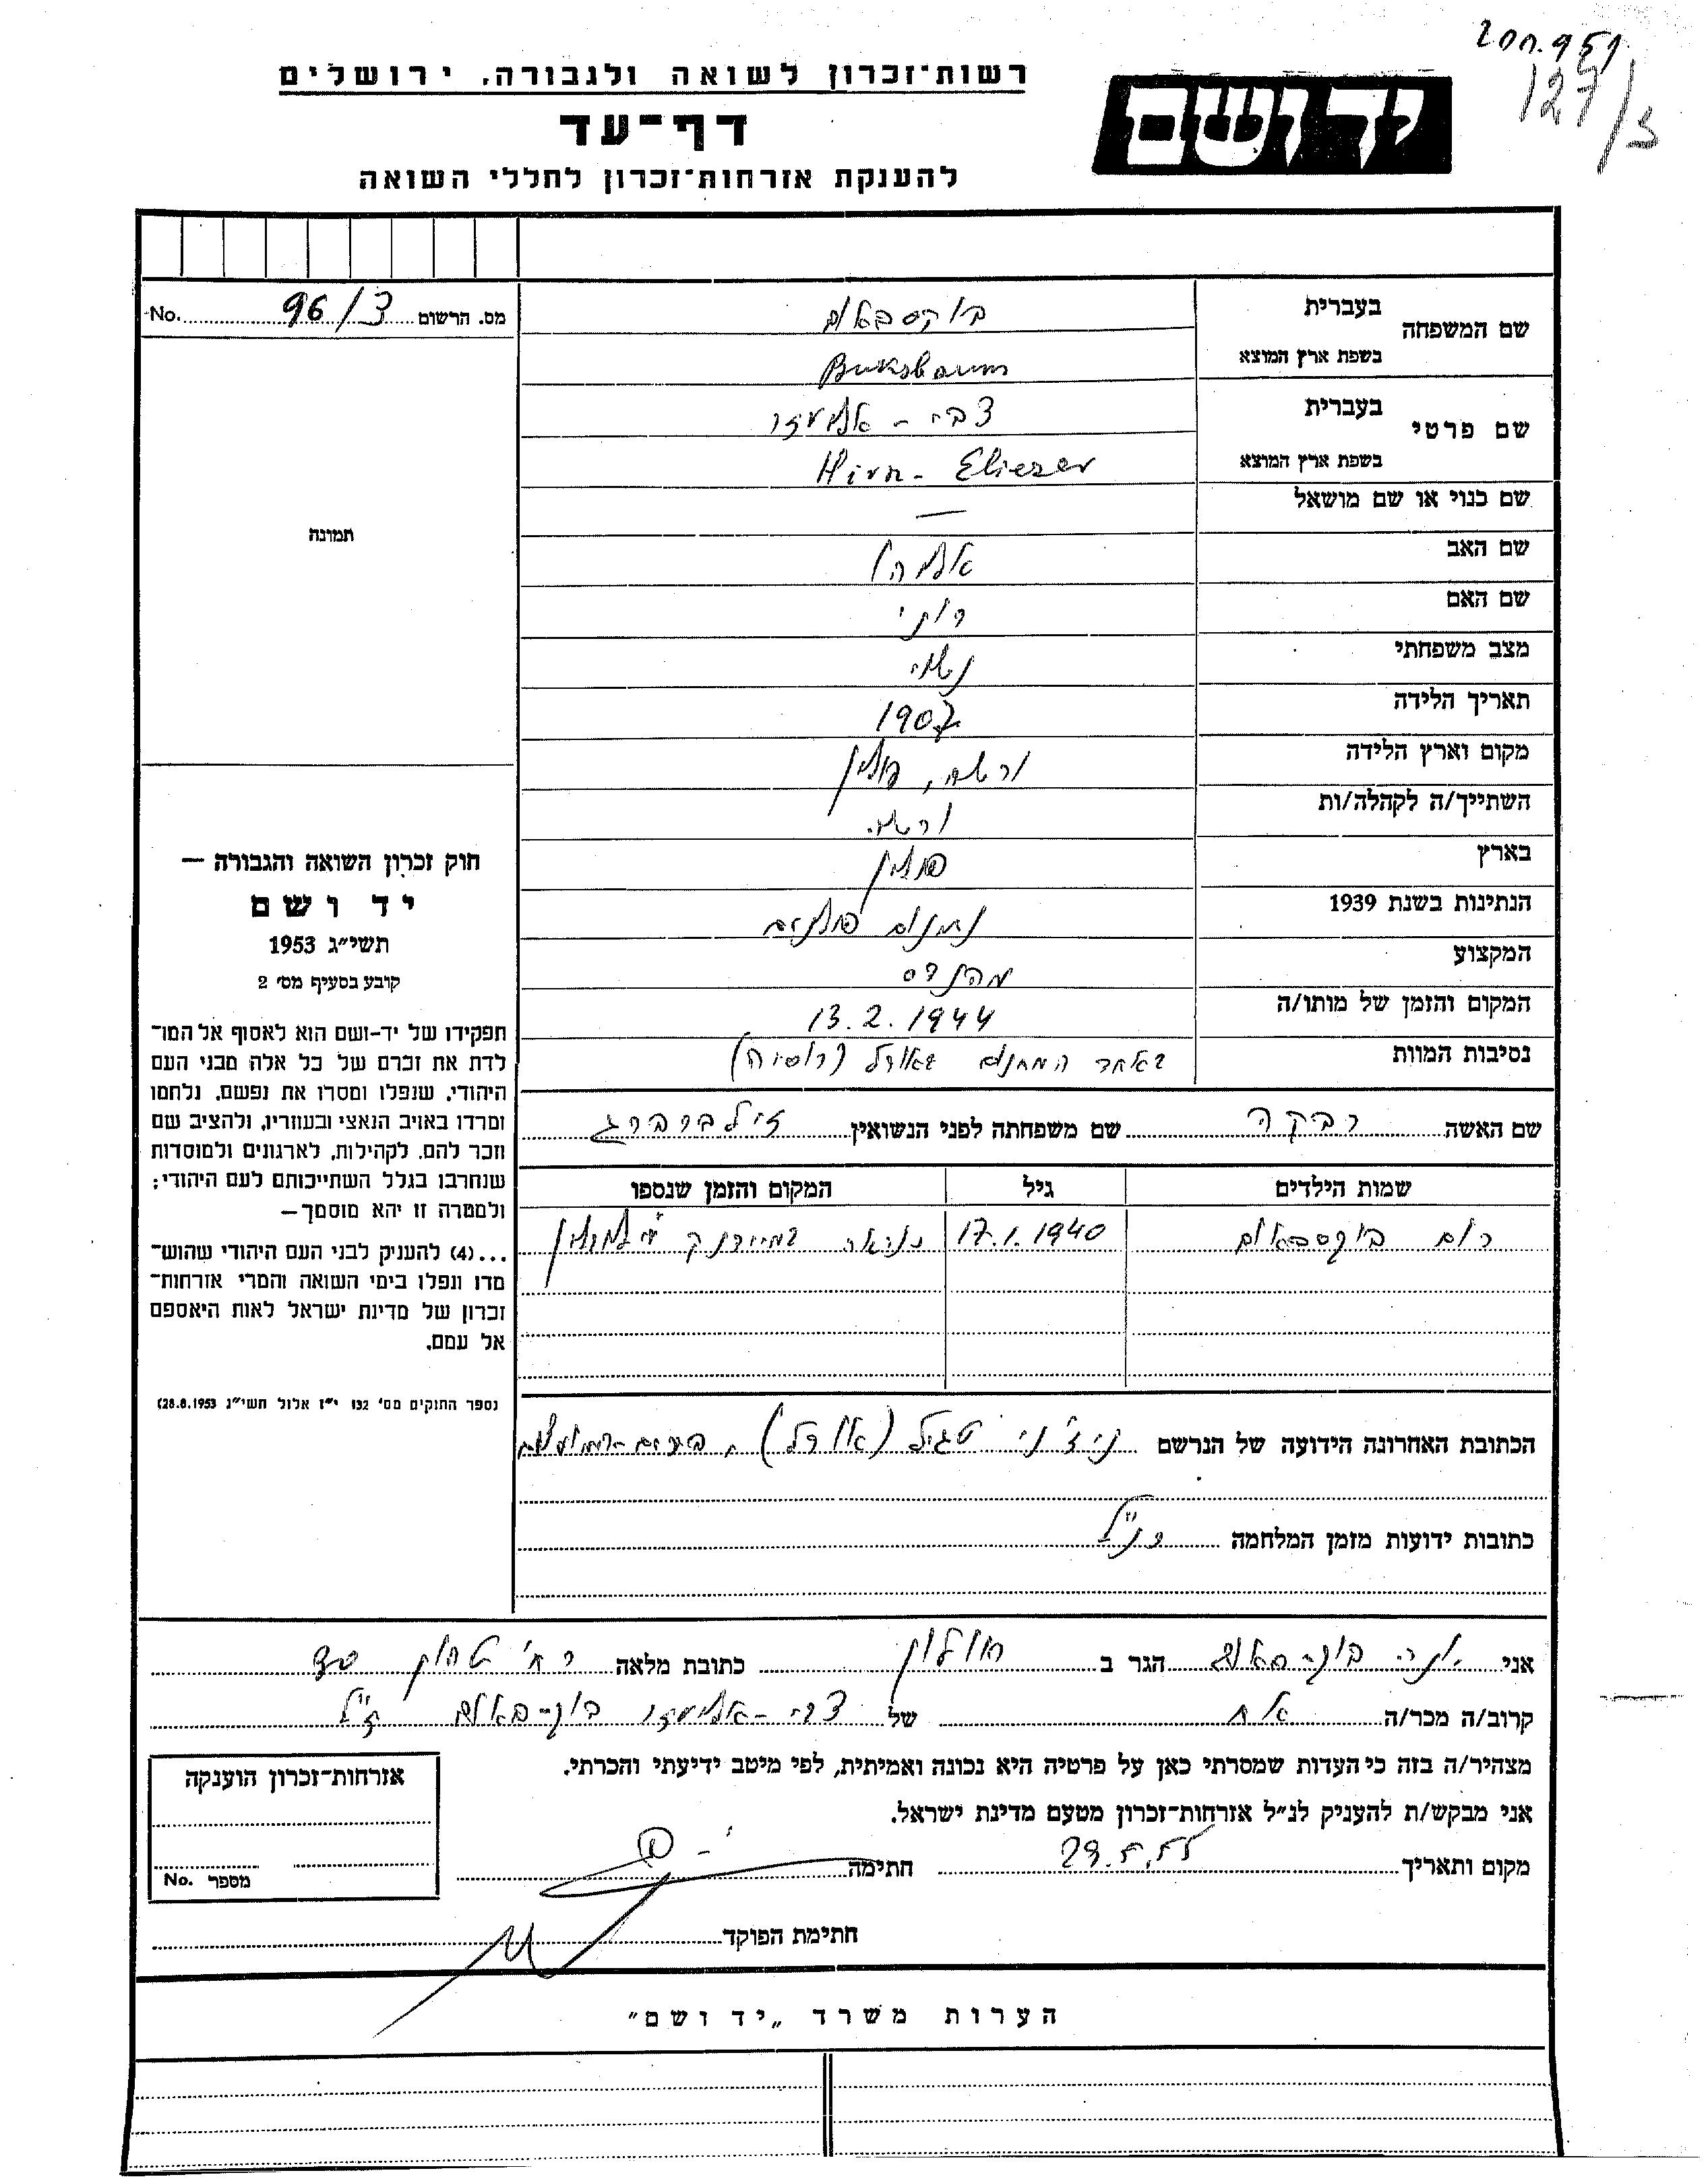 127/3
רשות־זכרון לשואה ולגבורה, ירושלים
יד ושם
דף־עד
להענקת אזרחות־זכרון לחללי השואה
מס. הרשום 96/3 No.
שם המשפחה
בעברית בוקסבאום
בשפת ארץ המוצא Buksbaum
שם פרטי
בעברית צבי - אליעזר
בשפת ארץ המוצא Hirn - Eliezer
שם כנוי או שם מושאל —
תמונה
שם האב
שם האם
מצב משפחתי נשוי
תאריך הלידה 1907
מקום וארץ הלידה ורשה, פולין
השתייך/ה לקהלה/ות ורשה
בארץ פולין
הנתינות בשנת 1939 נתינות פולנית
המקצוע מהנדס
המקום והזמן של מותו/ה 13.2.1944
נסיבות המוות באחד המחנות באורל (רוסיה)
חוק זכרון השואה והגבורה —
יד ושם
תשי״ג 1953
קובע בסעיף מס׳ 2
תפקידו של יד-ושם הוא לאסוף אל המו־
לדת את זכרם של כל אלה מבני העם
היהודי, שנפלו ומסרו את נפשם, נלחמו
ומרדו באויב הנאצי ובעוזריו, ולהציב שם
וזכר להם, לקהילות, לארגונים ולמוסדות
שנחרבו בגלל השתייכותם לעם היהודי;
ולמטרה זו יהא מוסמך—
...(4) להעניק לבני העם היהודי שהוש־
מדו ונפלו בימי השואה והמרי אזרחות־
זכרון של מדינת ישראל לאות היאספם
אל עמם.
(ספר החוקים מס׳ 132 י״ז אלול תשי״ג 28.8.1953)
שם האשה רבקה שם משפחתה לפני הנשואין זילברברג
שמות הילדים גיל המקום והזמן שנספו
רות בוקסבאום 17.1.1940 כנראה במיידנק
הכתובת האחרונה הידועה של הנרשם ניז'ני טגיל (אורל)
כתובות ידועות מזמן המלחמה כנ"ל
אני בוקסבאום הגר ב חולון כתובת מלאה רח'
קרוב/ה מכר/ה אח של צבי - אליעזר בוקסבאום ז"ל
מצהיר/ה בזה כי העדות שמסרתי כאן על פרטיה היא נכונה ואמיתית, לפי מיטב ידיעתי והכרתי.
אני מבקש/ת להעניק לנ״ל אזרחות־זכרון מטעם מדינת ישראל.
מקום ותאריך 29.5.55 חתימה
אזרחות־זכרון הוענקה
מספר No.
חתימת הפוקד
הערות משרד „יד ושם״